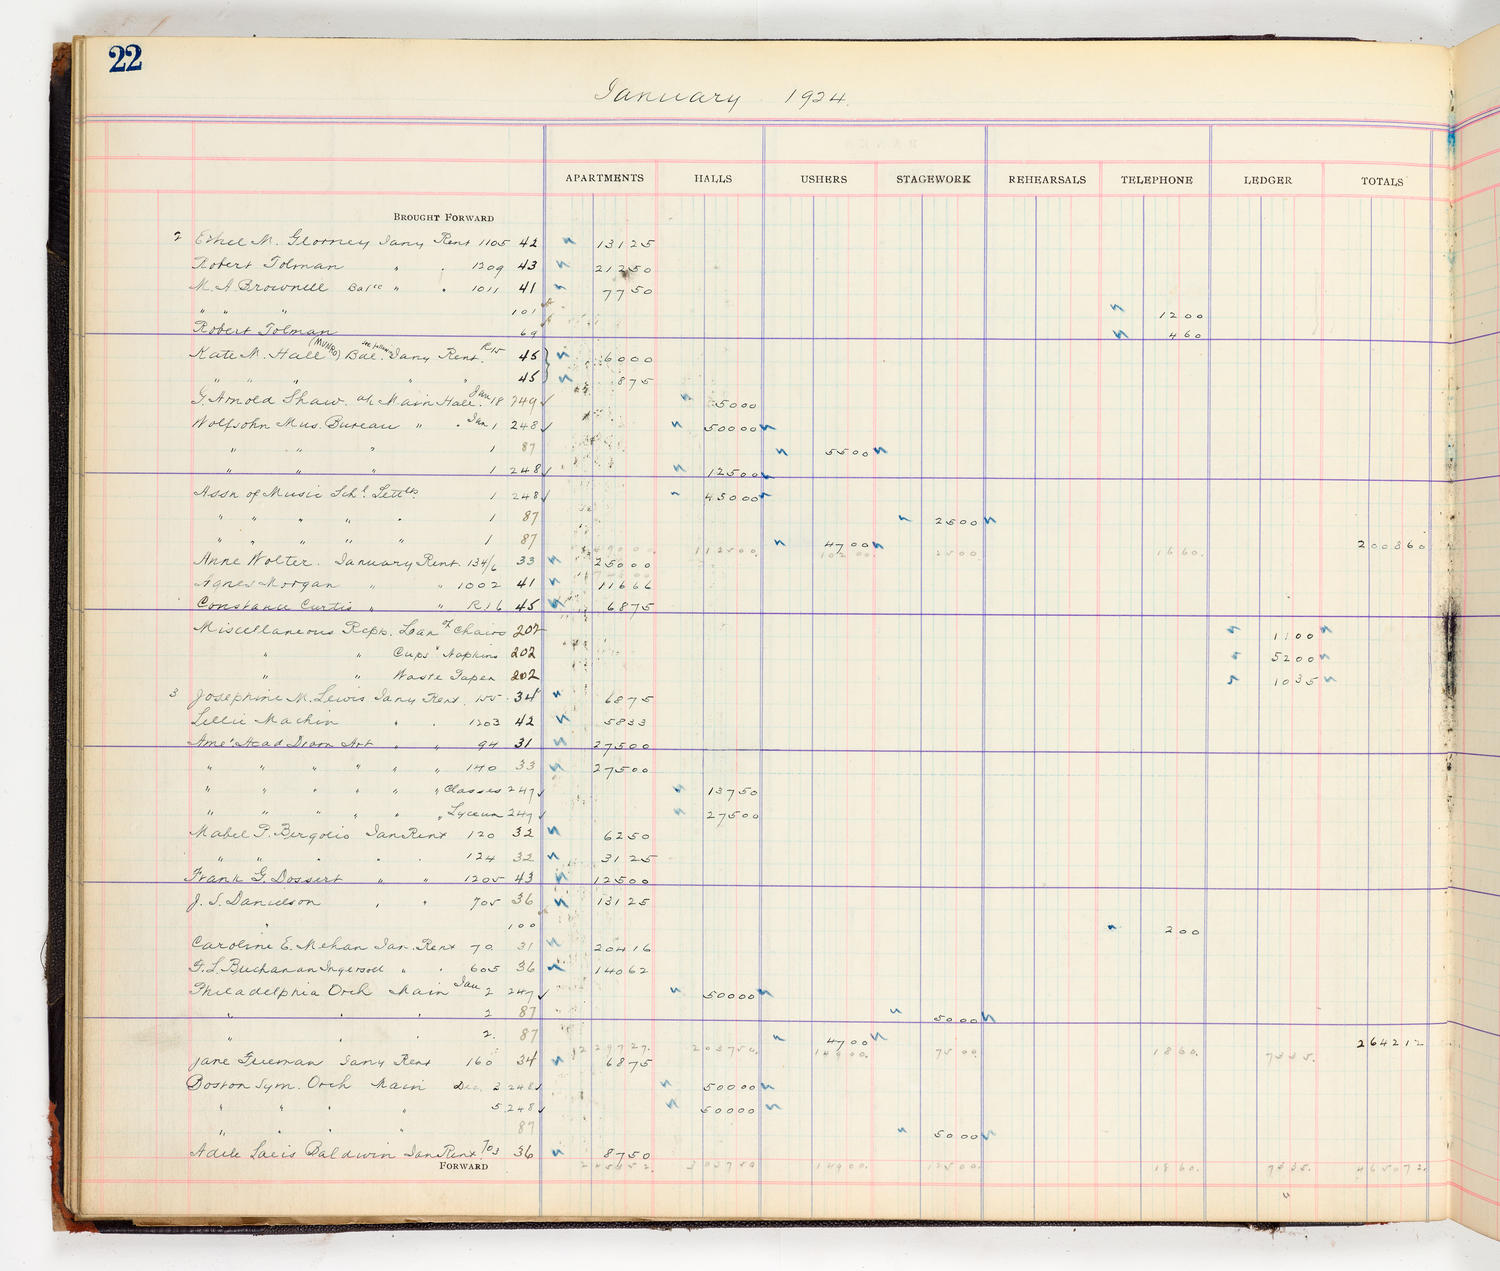 22
January 1924.
APARTMENTS HALLS USHERS STAGEWORK REHEARSALS TELEPHONE LEDGER TOTALS
BROUGHT FORWARD
2 Ethel M. Glorney Jany Rent 1105 42 131 25
Robert Tolman " . 1209 43 212 50
M. A. Brownell Balce " " 1011 41 77 50
" " " 101 12 00
Robert Tolman 69 4 60
Kate M. Hall (MUNRO) Bal. Jany Rent. R15 45 60 00
" " " " " 45 8 75
G. Arnold Shaw. a/c Main Hall Jan 18 249 50 00
Wolfsohn Mus. Bureau " " Jan 1 248 500 00
" " " 1 87 55 00
" " " 1 248 125 00
Assn of Music Schl. Settlts 1 248 450 00
" " " " " 1 87 25 00
" " " " " 1 87 47 00 2003 60
Anne Wolter. January Rent. 134/6 33 250 00
Agnes Morgan " " 1002 41 116 66
Constance Curtis " " R16 45 68 75
Miscellaneous Repts. Loan of Chairs 202 11 00
" " Cups " Napkins 202 52 00
" " Waste Paper 202 10 35
3 Josephine M. Lewis Jany Rent. 155 34 68 75
Lillie Machin " . 1203 42 58 33
Amer Acad Dram Art " " 94 31 275 00
" " " " " " 140 33 275 00
" " " " " " Classes 247 137 50
" " " " " " Lyceum 247 275 00
Mabel P. Bergolis Jan Rent 120 32 62 50
" " " " . 124 32 31 25
Frank G. Dossert " " 1205 43 125 00
J. S. Danielson " " 705 36 131 25
" 100 2 00
Caroline E. Mehan Jan. Rent 70 31 204 16
F. L. Buchanan Ingersoll " . 605 36 140 62
Philadelphia Orch Main Jan 2 247 500 00
" " " 2 87 50 00
" " " 2. 87 47 00 2642 12
Jane Freeman Jany Rent 160 34 68 75
Boston Sym. Orch Main Dec. 3 248 500 00
" " " " 5 248 500 00
" " " " 87 50 00
Adele Laeis Baldwin Jan Rent. 703 36 87 50
FORWARD 2453 52. 3037 50 149 00. 125 00. 18 60. 73 35. 4650 72.